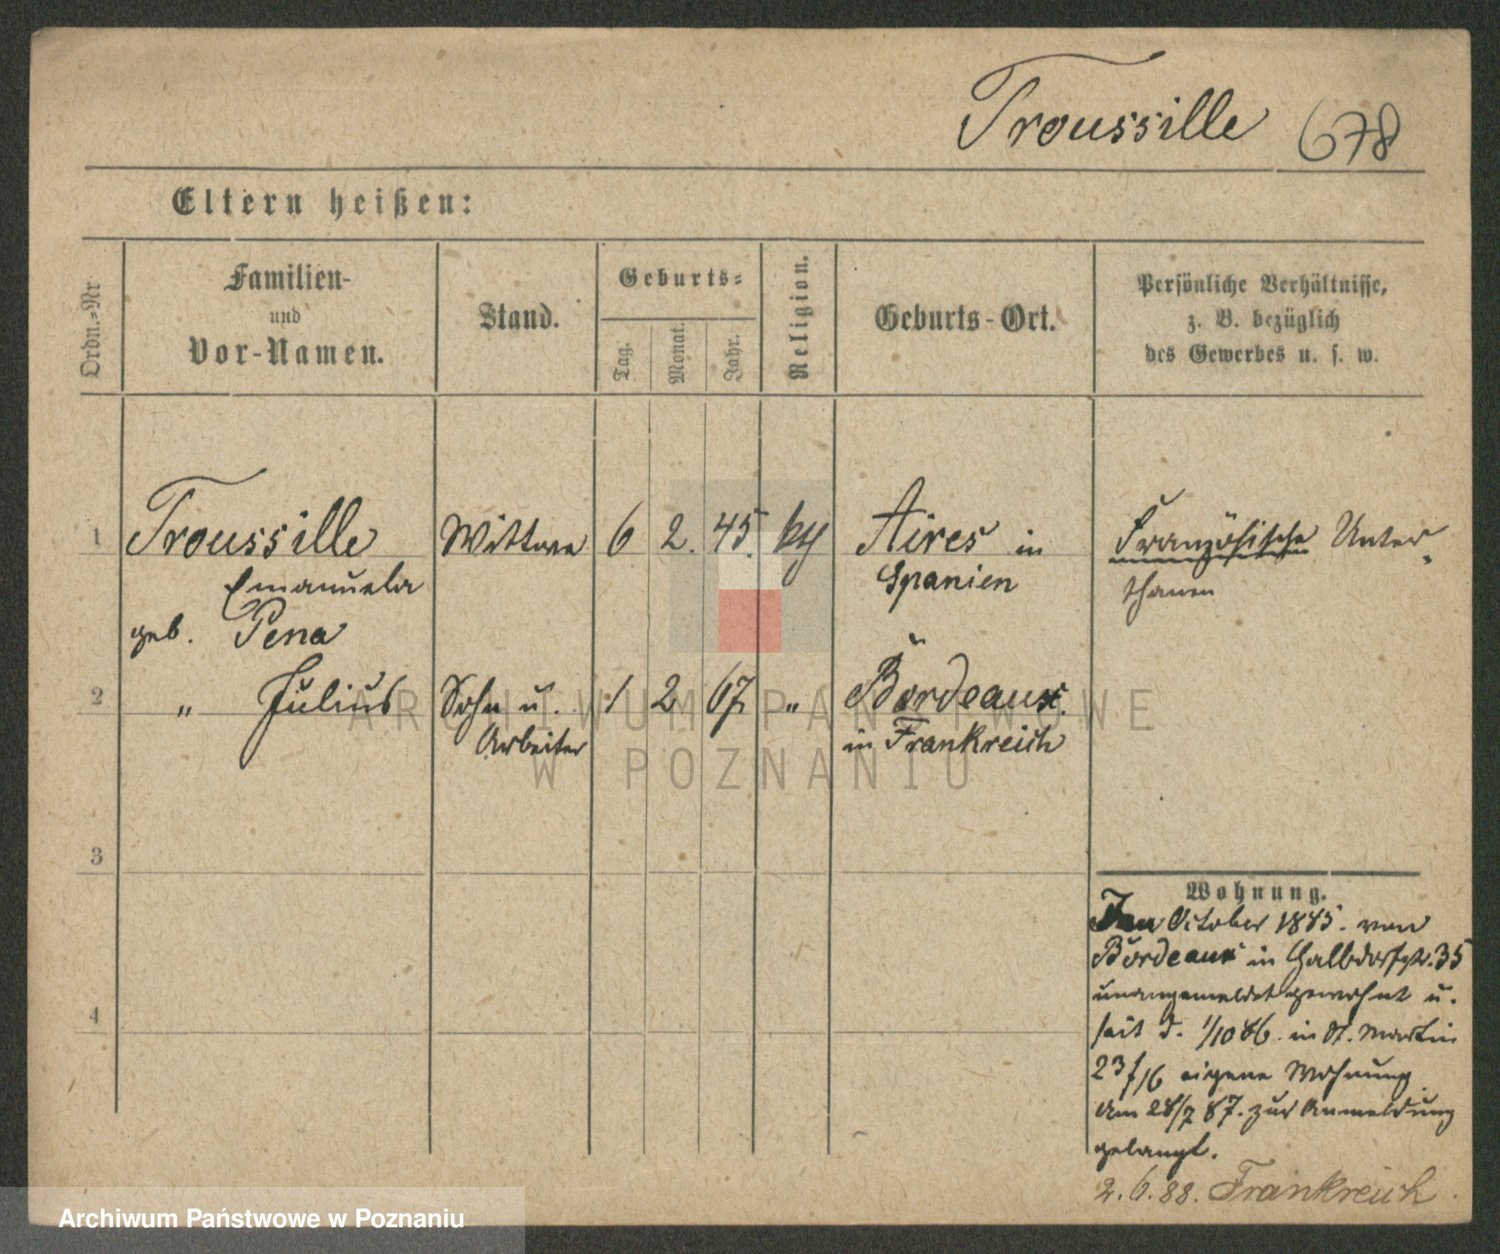 Troussille 678
Eltern heißen:
Ordn.-Nr
Familien-
und
Vor-Namen.
Stand.
Geburts-
Tag.
Monat.
Jahr.
Religion.
Geburts-Ort.
Persönliche Verhältnisse,
z. B. bezüglich
des Gewerbes u. s. w.
1 Troussille Wittwe 6 2. 45. kth Aires in Französische Unter-
Emanuela Spanien thanen
geb. Pena
2 " Julius Sohn u. 1 2 67 " Bordeaux.
Arbeiter in Frankreich
3
4
Wohnung.
Im October 1885. von
Bordeaux in Halbdorfstr. 35
unangemeldet gewohnt u.
seit d. 1/10 86. in St. Martin
23 f/16 eigene Wohnung
am 28/7 87. zur Anmeldung
gelangt.
2.6.88. Frankreich
ARCHIWUM PAŃSTWOWE
W POZNANIU
Archiwum Państwowe w Poznaniu